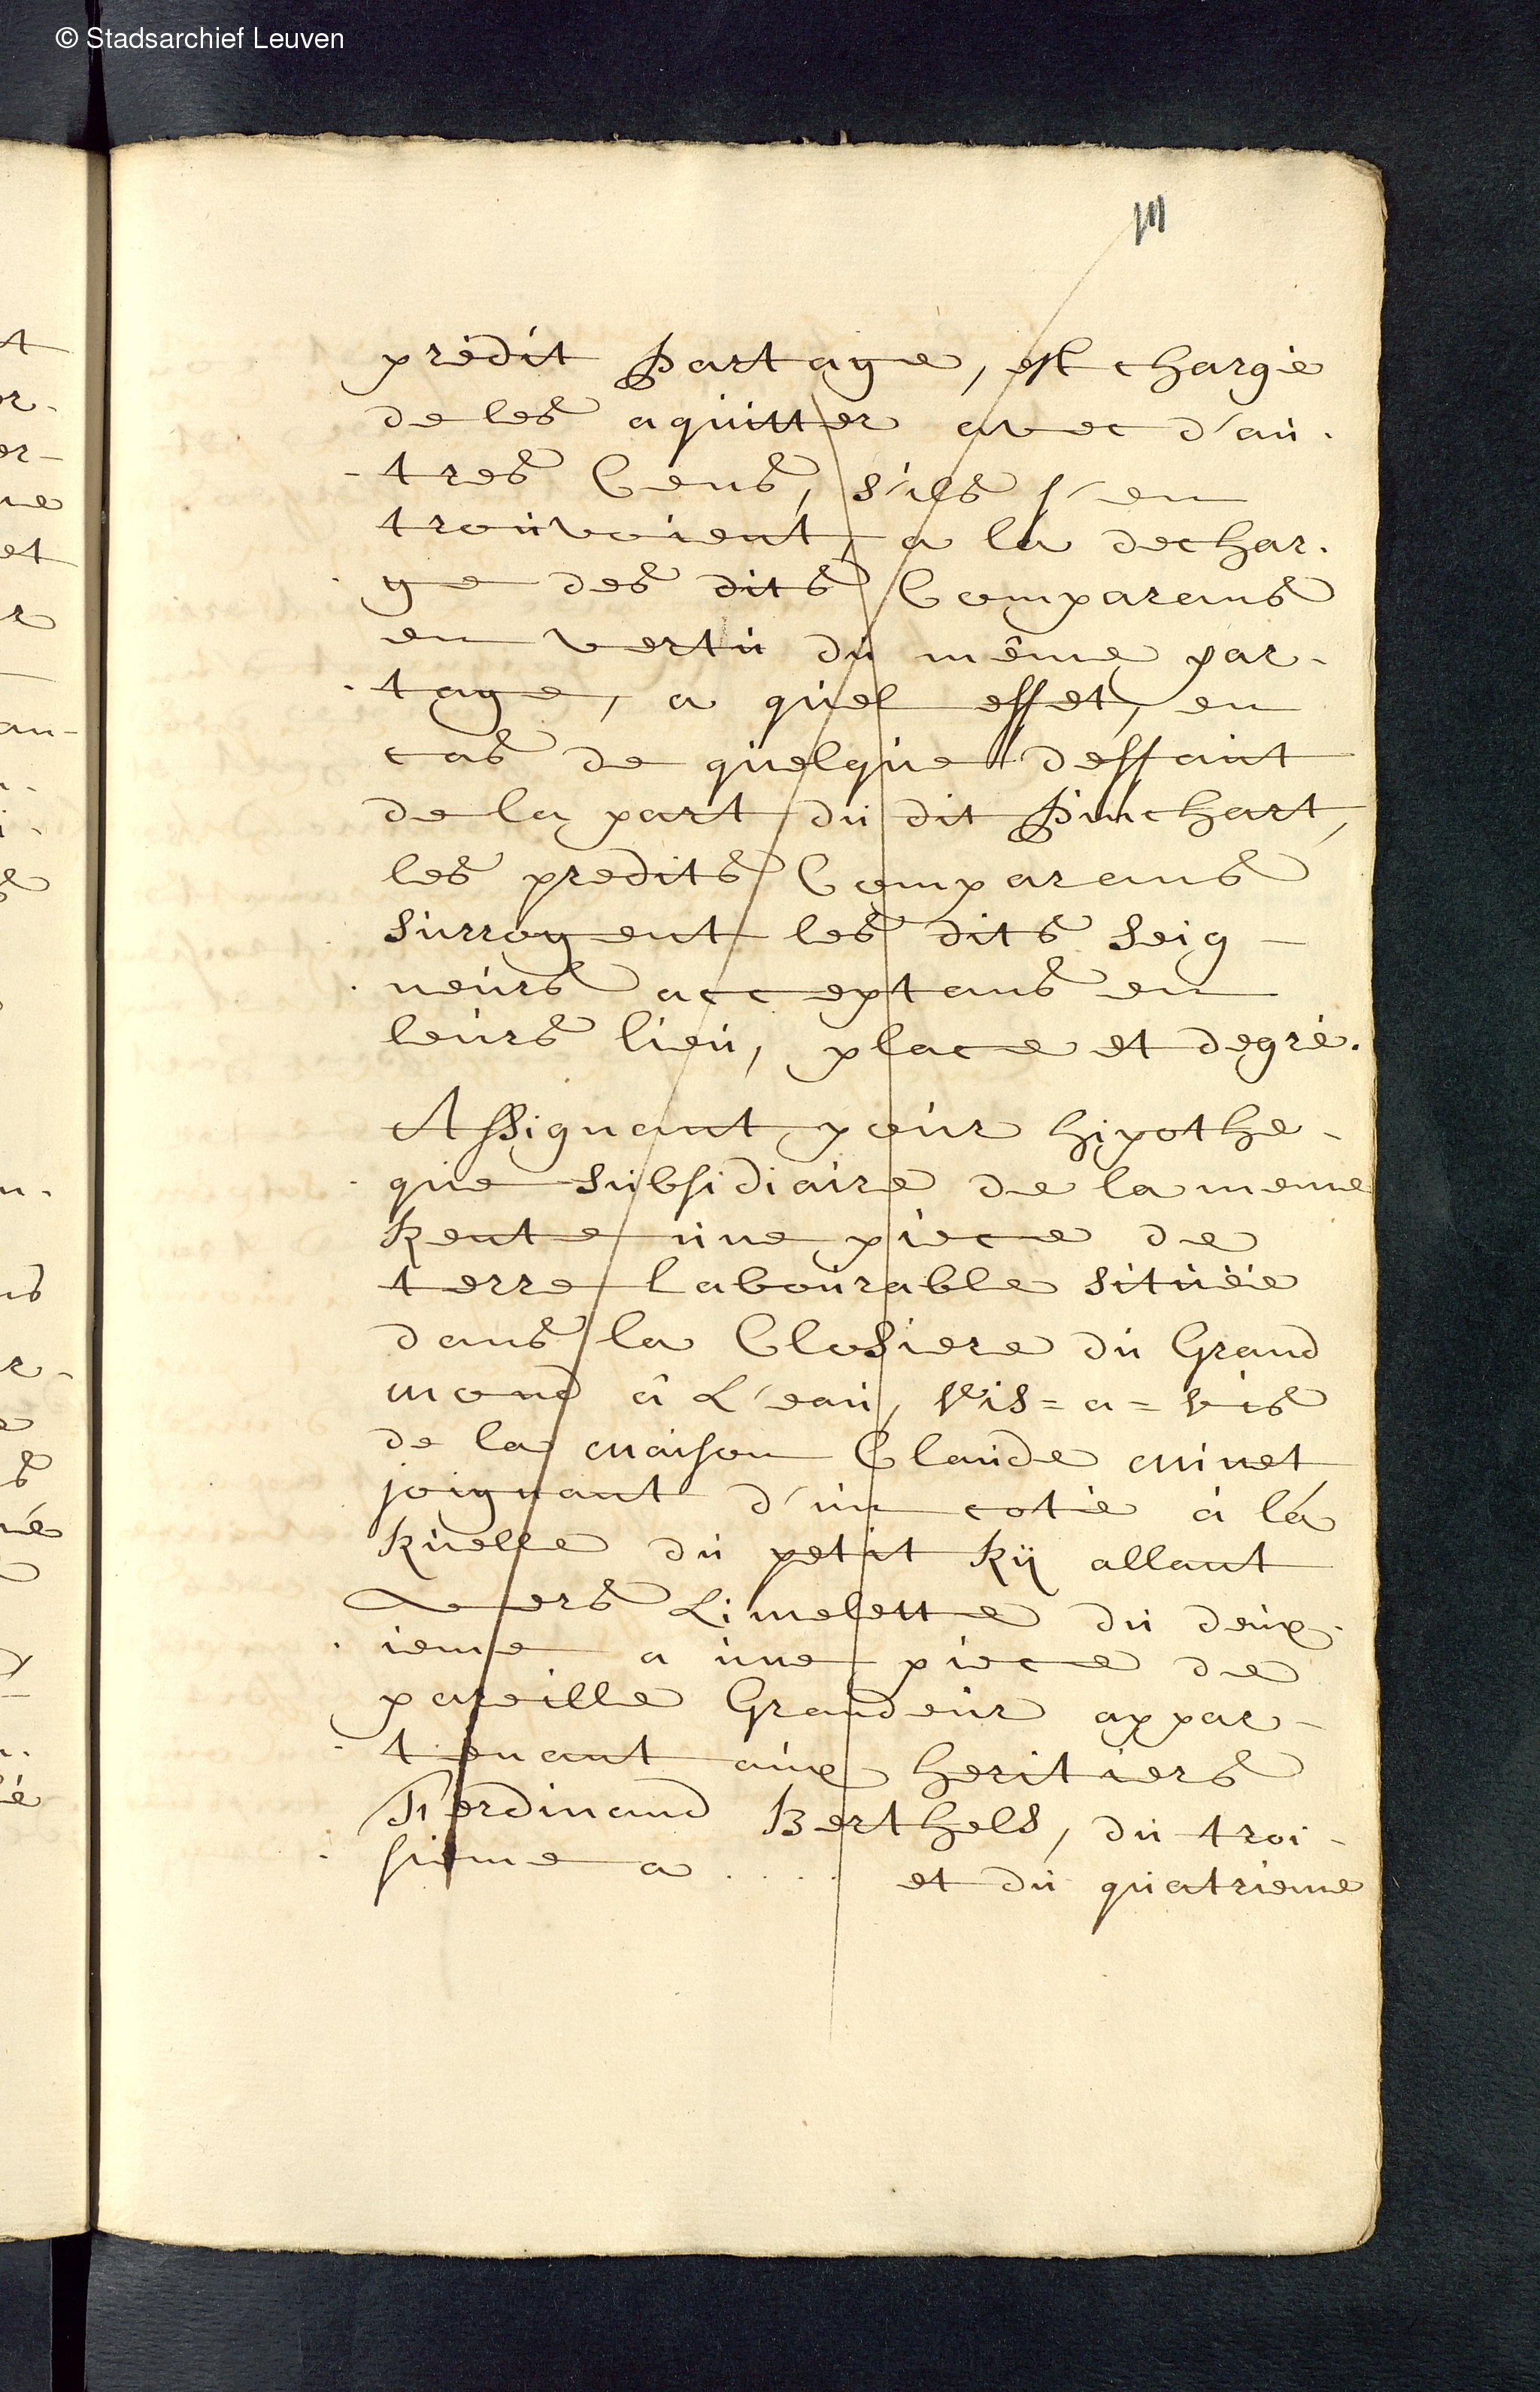 © Stadsarchief Leuven
prédit Partage, est chargé
de les aquitter avec d'au-
-tres Cens, s'ils s'en
trouvoient, a la dechar-
-ge des dits Comparans
en vertu du même par-
-tage, a quel effet, en
cas de quelque deffaut
de la part du dit Pinchart,
les predits Comparans
surrogent les dits Seig-
-neurs acceptans en
leurs lieu, place et degré.
Assignant pour hipothe-
-que subsidiaire de la meme
Rente une piece de
terre labourable située
dans la Closiere du Grand
mond à L'eau, vis=a=vis
de la maison Claude minet
joignant d'un coté à la
Ruelle du petit Ry allant
vers Limelette du deux-
-ieme a une piece de
pareille Grandeur appar-
-tenant aux heritiers
Ferdinand Berthels, du troi-
-sieme a ..... et du quatrieme